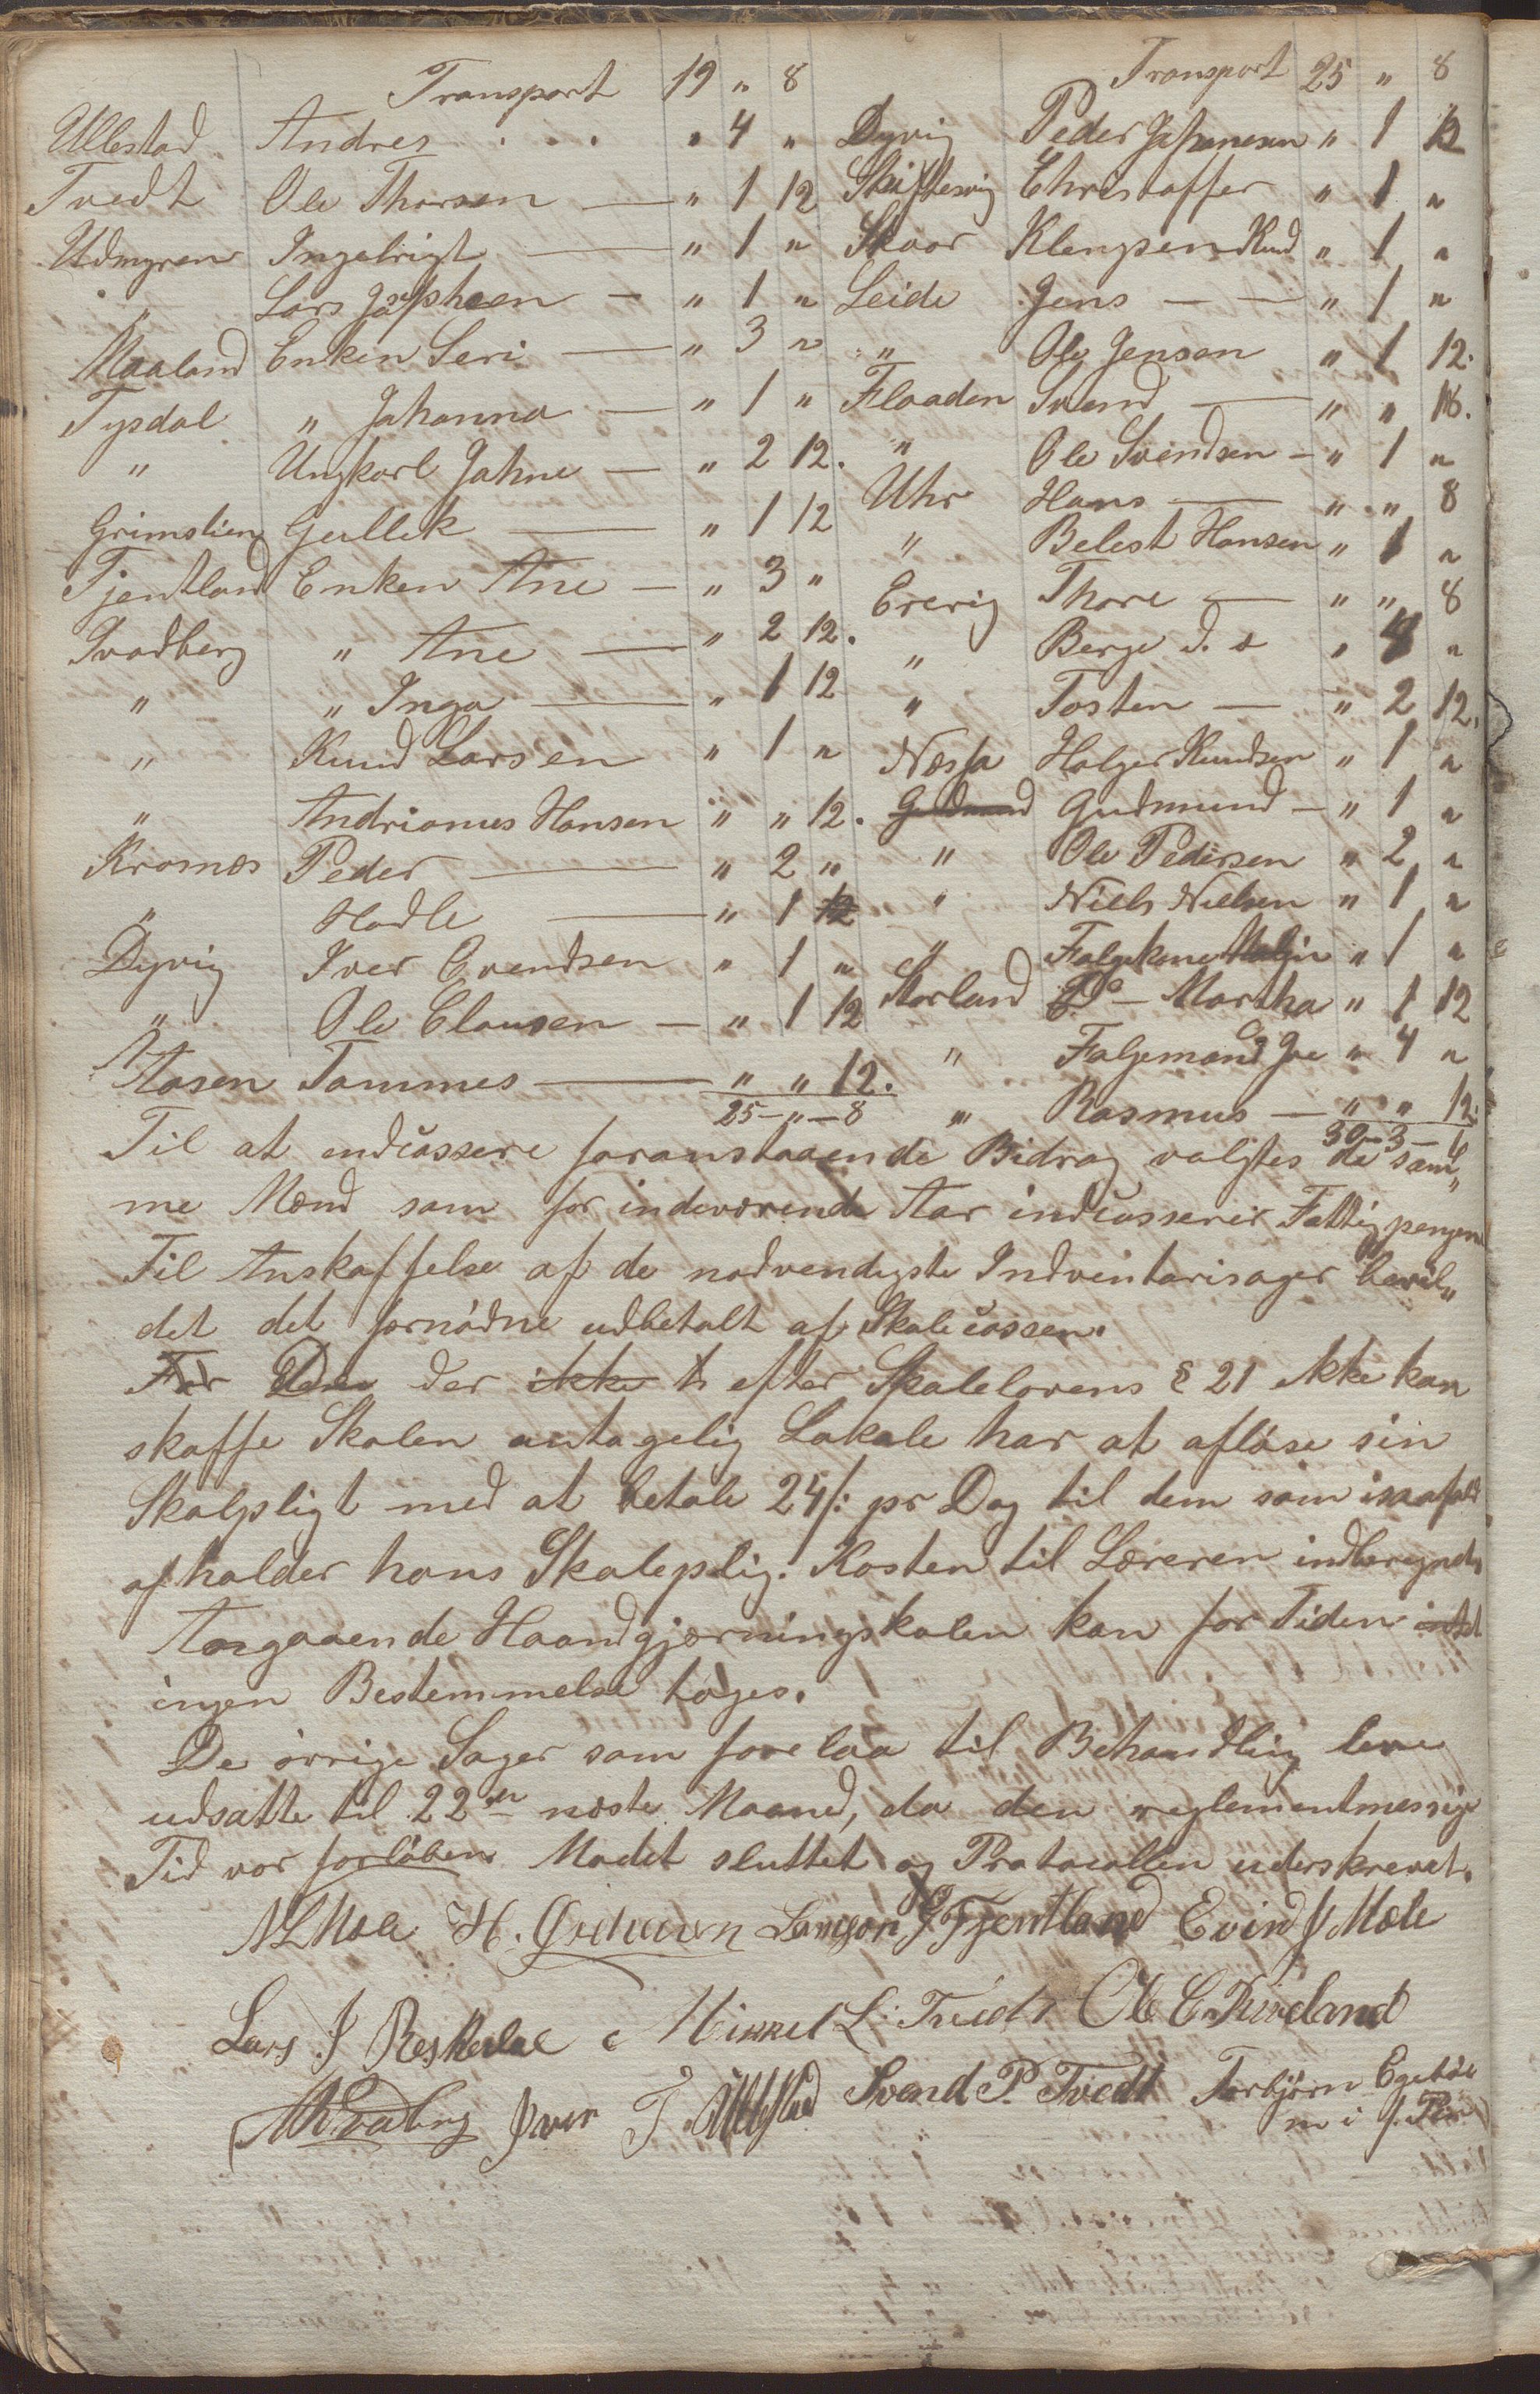 Transport 19 „ 8
Ullestad Andres . . . „ 4 „
Tvedt Ole Thorsen — „ 1 12
Udmyren Ingebrigt — „ 1 „
„ Lars Josephsen — „ 1 „
Maaland Enken Seri — „ 3 „
Tysdal „ Johanna — „ 1 „
„ Ungkarl Johne — „ 2 12.
Grimslien Gullek — „ 1 12
Fjentland Enken Ane — „ 3 „
Svadberg „ Ane — „ 2 12.
„ „ Inga — „ 1 12
„ Knud Larsen „ 1 „
„ Andrianus Hansen „ „ 12.
Kromnes Peder — „ 2 „
„ Hodle — „ 1 12
Dyvig Iver Evendsen „ 1 „
„ Ole Clausen — „ 1 12
Aasen Tommes — „ „ 12.
25 — „ — 8
Transport 25 „ 8
Dyvig Peder Johanesen „ 1 12
Skiftesvig Christoffer „ 1 „
Skaar Klengsen Knud „ 1 „
Leide Jens — — „ 1 „
„ Ole Jensen „ 1 12.
Flaaden Svend — „ „ 18.
„ Ole Svendsen — „ 1 „
Uhr Hans — „ „ 8
„ Belest Hansen „ 1 „
Ererig Thore — „ „ 8
„ Berge d. s „ 4 „
„ Tosten — „ 2 12.
Nessa Holger Knudsen „ 1 „
Gudmund Gudmund — „ 1 „
„ Ole Pedersen „ 2 „
„ Niels Nielsen „ 1 „
„ Folgekone „ 1 „
Storland Do — Martha „ 1 12
„ Folgemand „ 4 „
„ Rasmus — „ „ 12.
30 — 3 —
Til at indcassere foranstaaende Bidrag valgtes de sam„
me Mænd som for indeværende Aar indcasserer Fattigpengene
Til Anskaffelse af de nødvendigste Indventarisager bevil„
det det fornødne udbetalt af Skolecassen.
For Den der ikke efter Skolelovens § 21 ikke kan
skaffe Skolen antagelig Lokale har at afløse sin
Skolpligt med at betale 24 /: pr Dag til dem som isaafald
afholder hans Skoleplig. Kosten til Læreren indberegnet
Angaaende Haandgjerningskolen kan for Tiden intet
ingen Bestemmelse tages.
De øvrige Sager som forelaa til Behandling bleve
udsatte til 22de næste Maaned, da den reglementmessige
Tid var forløben Mødet sluttet og Protocollen underskrevet.
N L Mæle H. Lamgon J Fjentland Evind J Mæle
Lars J Reskedal Mikkel L. Tvedt Ole C. Kiveland
Iver T. Ullestad Svend P. Tvedt Torbjørn Egebøe
m i f. Pen